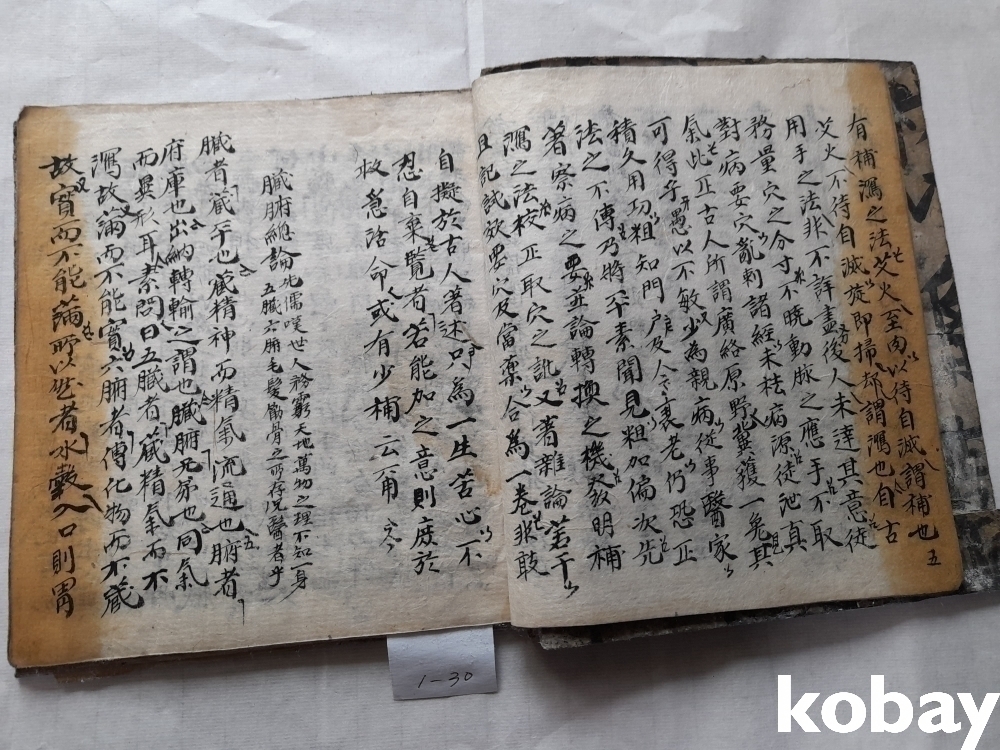 有補瀉之法艾火至肉以待自滅謂補也五
艾火不待自滅旋即掃却謂瀉也自古
用手之法非不詳盡後人未達其意徒
務量穴之分寸不曉動脉之應手不取
對病要穴亂刺諸經未祛病源徒泄真
氣此正古人所謂廣絡原野冀獲一兎其
可得乎愚以不敏少為親病從事醫家
積久用功粗知門户及今衰老仍恐正
法之不傳乃將平素聞見粗加徧次先
著察病之要並論轉換之機發明補
瀉之法校正取穴之訛又著雜論若干
且記試效要穴及當藥合為一卷非敢
自擬於古人著述只為一生苦心不
忍自棄覧者若能加之意則庶於
救急活命或有少補云甭
臟腑總論 先儒嘆世人務窮天地萬物之理不知一身
五臟六腑毛髮筋骨之所存况醫者乎
臟者藏乎也藏精神而精氣流通也腑者
府庫也出納轉輸之謂也臟腑兄弟也同氣
而異形耳素問曰五臟者藏精氣而不
瀉故滿而不能實六腑者傳化物而不藏
故實而不能滿所以然者水穀入口則胃
1-30
kobay